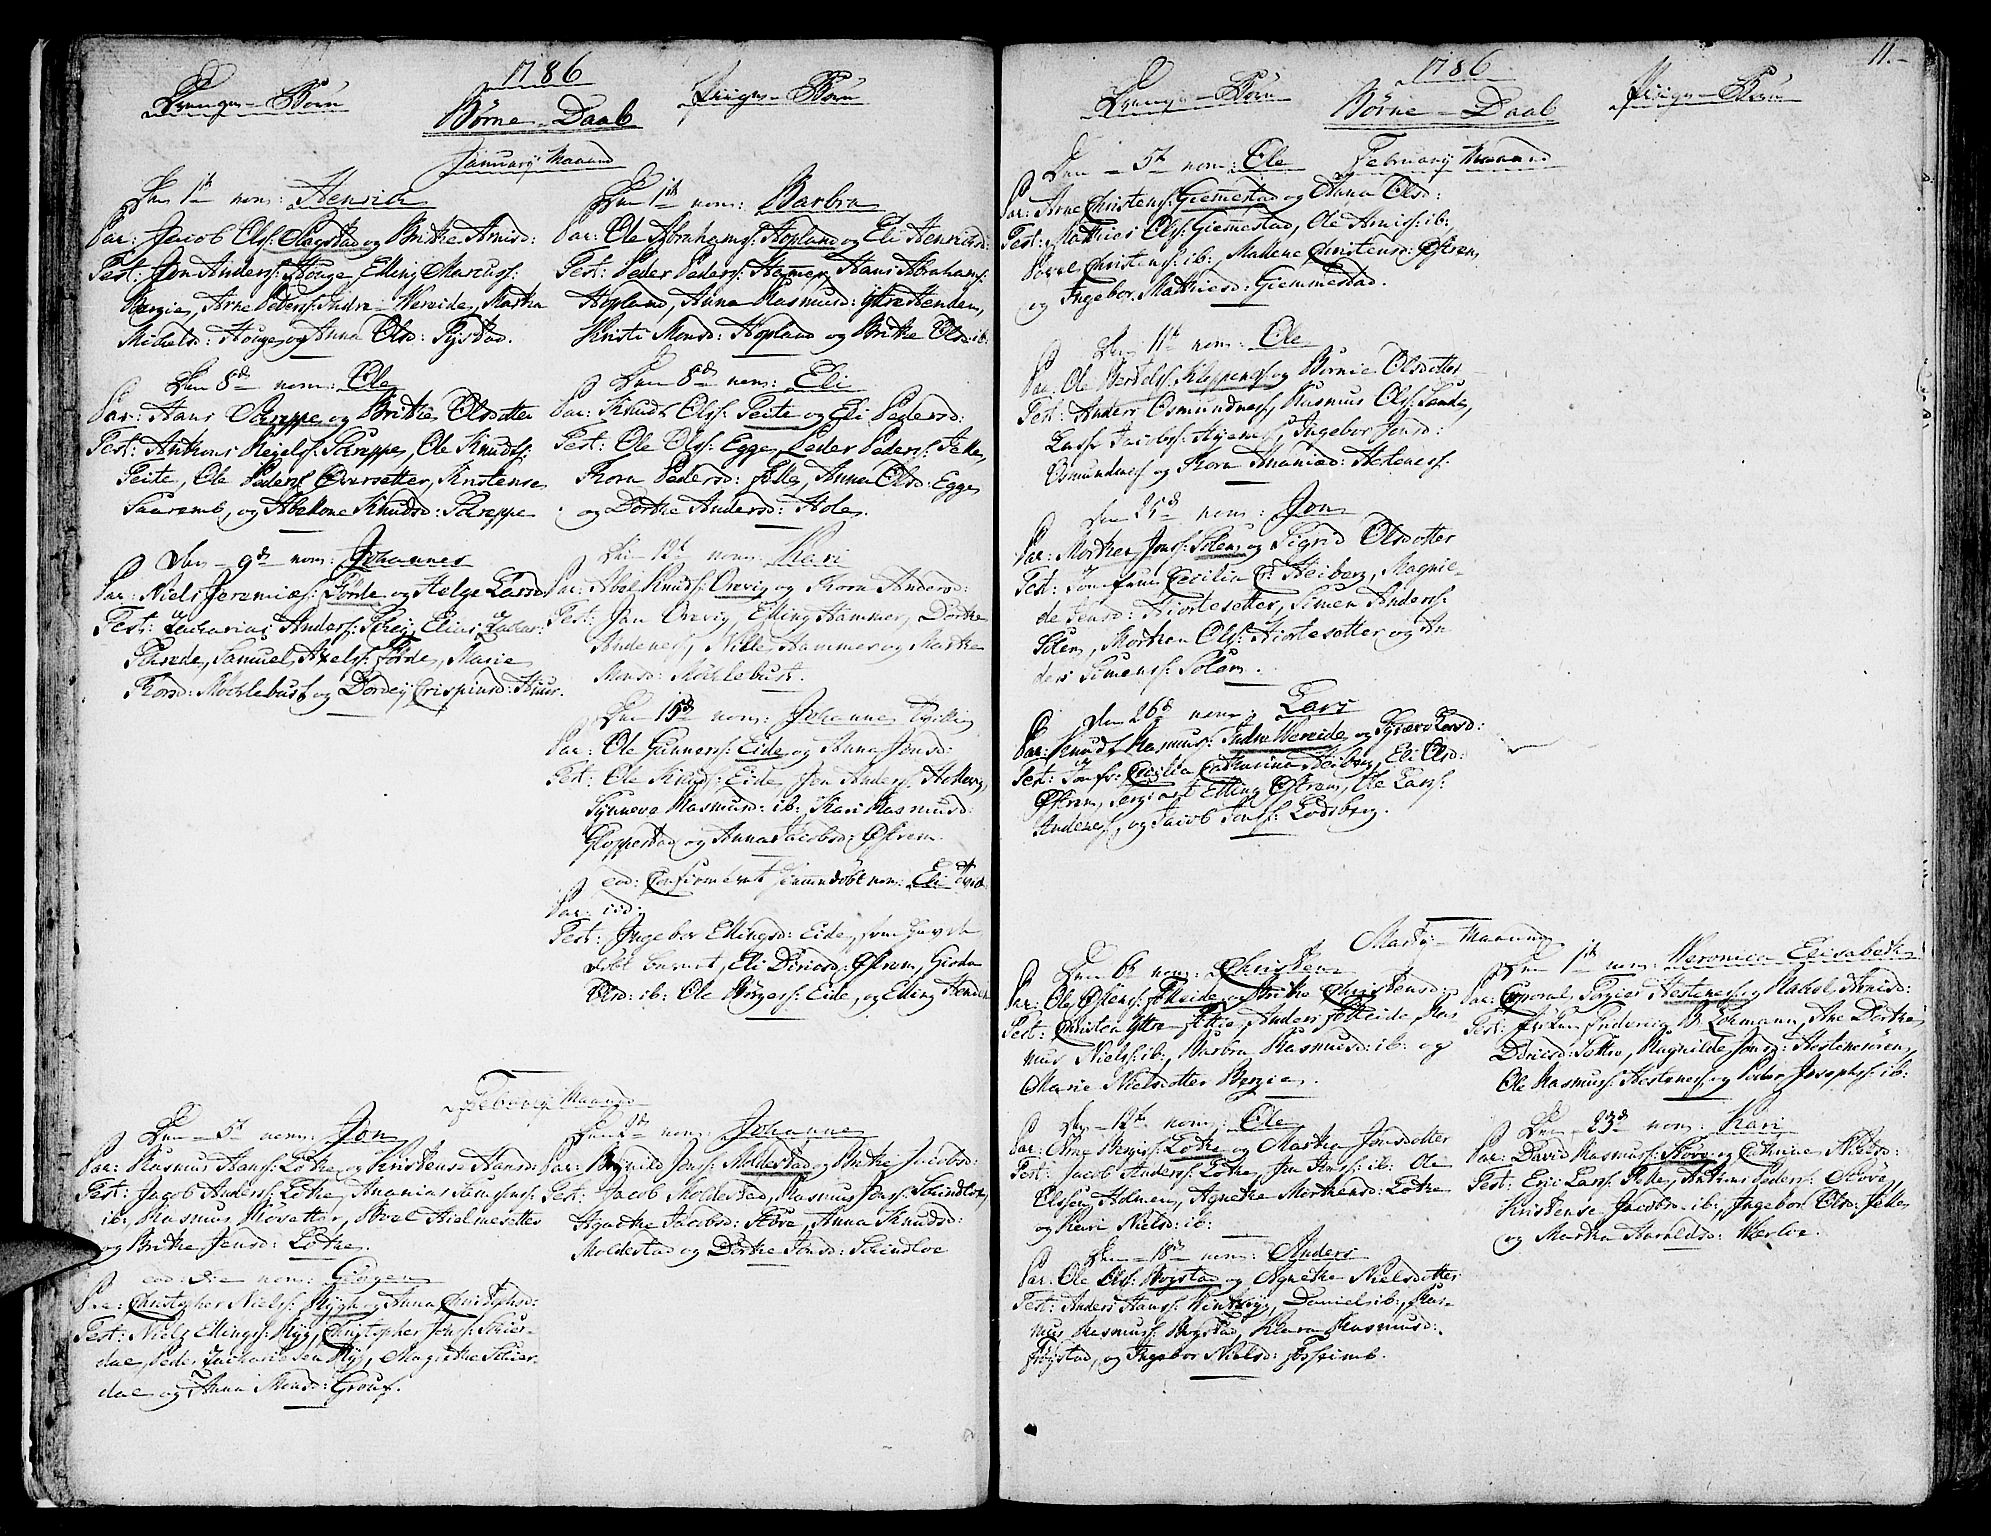 1786
Drenge-Børn
Piiger-Børn
Børne-Daab
Januarij Maaned
Den 1te nom: Henrich
Par: Jacob Olss: Sagstad og Brithe Arnisd:
Test: Jon Anderss: Houge, Elling Marcuss:
Bergie, Arne Pederss: Indre-Hereide, Martha
Michelsd: Houge og Anna Olsd: Rystad.
Den 8de nom: Ole
Par: Hans Schreppe og Brithe Olsdotter
Test: Anthoni Reiels: Schreppe, Ole Knudss:
Peite, Ole Pederss: Oversetter, Kristense
Saaremb, og Abelone Knudsd: Schreppe
Den 9de nom: Johannes
Par: Niels Jeremiæs: Förde og Helge Larsd
Test: Zacharias Anderss: Schrej, Elias Zachar:
Scheede, Samuel Axelss: Förde, Marie
Thorsd: Mochlebust og Dordej Crispinsd: Skuur.
Den 1te nom: Barbra
Par: Ole Abrahamss: Hopland og Eli Henrichsd:
Test: Peder Pederss: Hammer, Hans Abrahams:
Hopland, Anna Rasmusd: Ytre Henden,
Kristi Monsd: Hopland og Brithe Olsd ib:
Den 8de nom: Eli
Par: Knudt Olss: Peite og Eli Pedersd:
Test: Ole Olss: Egge, Peder Pederss: Felle,
Thorn Pedersd: Felle, Anna Olsd: Egge
og Dorthe Andersd: Hole.
Den 12te nom: Kari
Par: Abel Knuds: Orevig og Thorn Andersd:
Test: Jan Orevig, Elling Hammer, Dorthe
Andenes, Nille Hammer og Marthe
Monsd: Mochlebust.
Den 15de nom: Johanne Tvilling
Par: Ole Gunnerss: Eide og Anna Jonsd:
Test: Ole Knuds: Eide, Jon Anderss: Hellevig,
Synneva Rasmusd: ib: Kari Rasmusd:
Gloppestad og Anna Jacobsd: Østrem.
eod: Confirmeret hiemmedøbt nom: Eli
Par: iid:
Test: Ingebor Ellingsd: Eide, som havde
døbt barnet, Eli Diricsd: Østrem, Giøda
Olsd: ib: Ole Börgess: Eide, og Elling Henden
Februarij Maaned
Den 5te nom: Jon
Par: Rasmus Hanss: Lothe og Kristense Hansd:
Test: Jacob Anderss: Lothe, Ananias
ib: Rasmus Rosetter, Abel Hielmesetter
og Brithe Jensd: Lothe.
eod: Die nom: Giögen
Par: Christopher Nielss: Rygh og Anna Christophsd:
Test: Niels Ellings: Ryg, Christopher Jons: Skier-
dae, Peder Zachariesen Ryg, Magrethe Skier-
dae og Anna Monsd: Grouf.
Den 2de nom: Johanne
Par: Bøynild Jonss: Moldestad og Brithe Jacobsd:
Test: Jacob Moldestad, Rasmus Jonss: Scheidloe,
Agnethe Jacobsd: Støve, Anna Knudsd:
Moldestad og Dorthe Jonsd: Scheidloe
11.
1786
Drenge-Børn
Piiger-Børn
Børne-Daab
Februarij Maaned
Den 5te nom: Ole
Par: Arne Christens: Giemmestad og Anna Olsd:
Test: Mathias Olss: Giemmestad, Ole Arniss: ib:,
Povel Christenss: ib:, Mallene Christensd: Østrem,
og Ingebor Mathiesd: Giemmestad.
Den 11te nom: Ole
Par: Ole Bertels: Kleppenes og Bernie Olsdotter
Test: Anders Osmundnes, Rasmus Olss: Sande,
Lasse Jacobss: Hjemes, Ingebor Jonsd:
Osmundnes og Thorn Ananiæd: Hestenes.
Den 25de nom: Jon
Par: Morthen Jons: Solem og Sigrid Olsdotter
Test: Jomfrue Cecilia C: Heiberg, Magnil-
de Jensd: Hiortesetter, Simen Anderss:
Solem, Morthen Olss: Hiortesetter og An
ders Simenss: Solem.
Den 26de nom: Lars
Par: Knudt Rasmus: Indre Hereide og Synneve Larsd:
Test: Jomfr: Cecilia Catharina Heiberg, Eli Olsd:
Østrem, Sergiant Elling Østrem, Ole Larss:
Andenes, og Jacob Jonss: Lodsberg.
Martij Maaned
Den 6te nom: Christen
Par: Ole Østens: Fölleide og Brithe Christensd:
Test: Christen Yttre Fitie, Anders Fölleide, Ras
mus Nielss: ib:, Barbra Rasmusd: ib: og
Marie Nielsdotter Bergie.
Den 12te nom: Ole
Par: Arne Bergiss: Lothe og Martha Jonsdotter
Test: Jacob Anderss: Lothe, Jon Jonss: ib: Ole
Elssen Holmen, Agnethe Morthensd: Lothe
og Kari Nielsd: ib:
Den 18de nom: Anders
Par: Ole Olss: Rygstad og Agnethe Nielsdotter
Test: Anders Hanss:, Daniel ib:, Ras-
mus Rasmuss: Rygstad, Klara Rasmusd:
Frystad, og Ingebor Nielsd: Fossimb.
Den 1te nom: Veronica Elisabeth
Par: Corporal Torgier Hestenes og Rakel Arnisd:
Test: Friderig B: Lohmann, Ane Dorthe
Diricsd: Sothe, Magnilde Jonsd: Hestenesøen,
Ole Rasmus: Hestenes og Peder Josephs: ib:
Den 23de nom: Kari
Par: David Rasmuss: Støve og Cathrine Nielsd:
Test: Eric Larss: Felle, Anthoni Pederss: Støve,
Kristense Jacobsd: ib:, Ingebor Olsd: Felle
og Martha Haraldsd: Werloe.